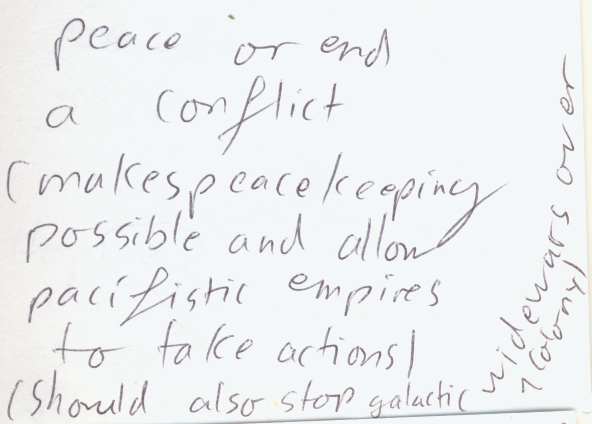 peace or end
a conflict
(makes peacekeeping
possible and allow
pacifistic empires
to take actions)
(should also stop galactic
widewars over
1 colony)